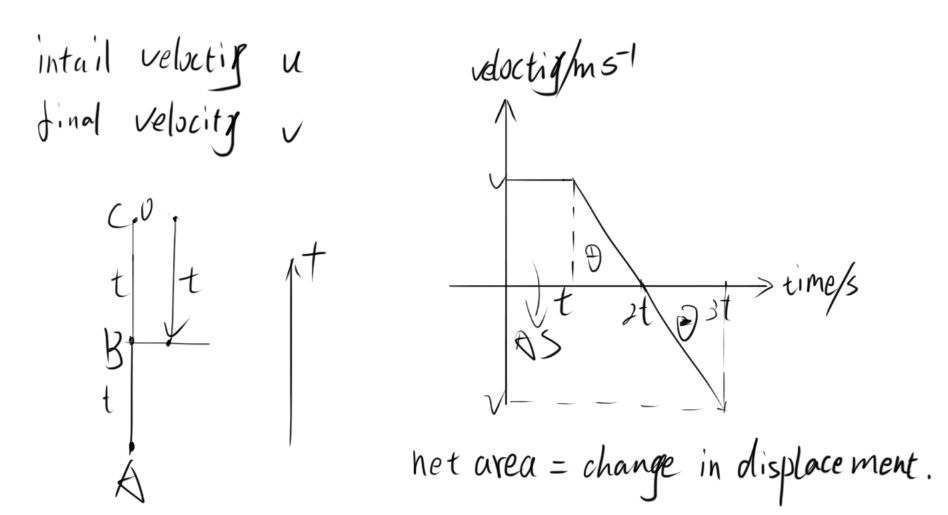 intail veloctiy u
final velocity v
C.0
t
t
B
t
A
+
veloctiy/ms⁻¹
v
+
t
2t
3t
-
time/s
ΔS
v
net area = change in displacement.